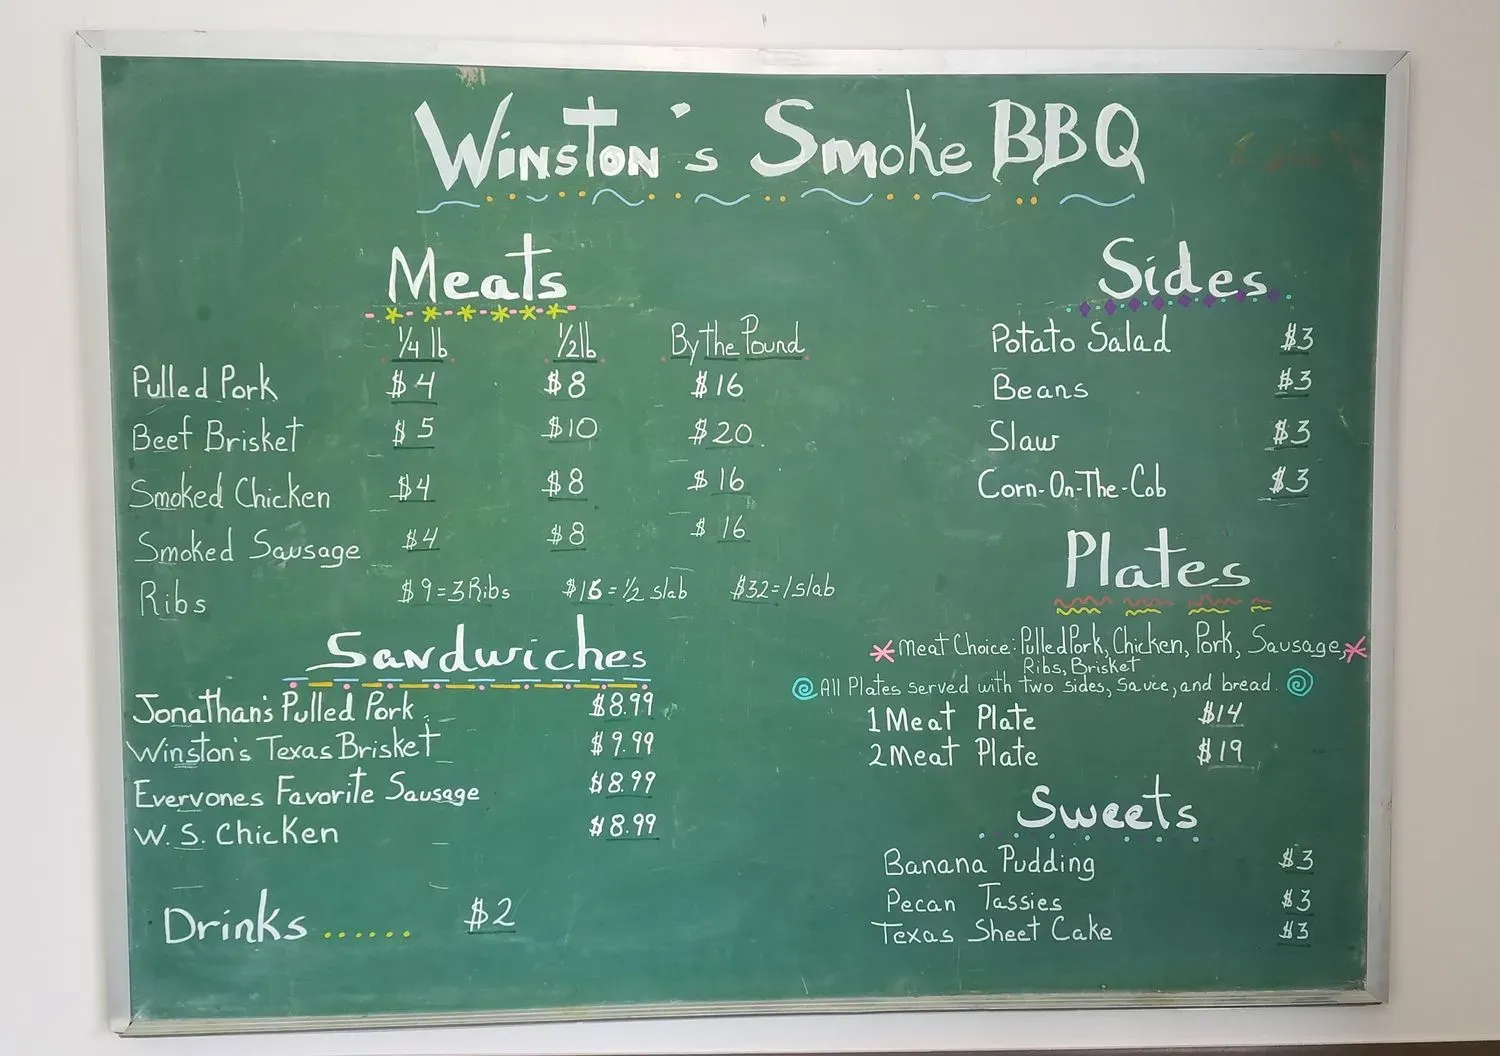 Winston's Smoke BBQ
Meats
1/4 lb 1/2 lb By the Pound
Pulled Pork $4 $8 $16
Beef Brisket $5 $10 $20
Smoked Chicken $4 $8 $16
Smoked Sausage $4 $8 $16
Ribs $9=3 Ribs $16=1/2 slab $32=1 slab
Sandwiches
Jonathan's Pulled Pork $8.99
Winston's Texas Brisket $9.99
Everyones Favorite Sausage $8.99
W. S. Chicken $8.99
Drinks...... $2
Sides
Potato Salad $3
Beans $3
Slaw $3
Corn-On-The-Cob $3
Plates
*Meat Choice: Pulled Pork, Chicken, Pork, Sausage,*
Ribs, Brisket
All Plates served with two sides, sauce, and bread.
1 Meat Plate $14
2 Meat Plate $19
Sweets
Banana Pudding $3
Pecan Tassies $3
Texas Sheet Cake $3